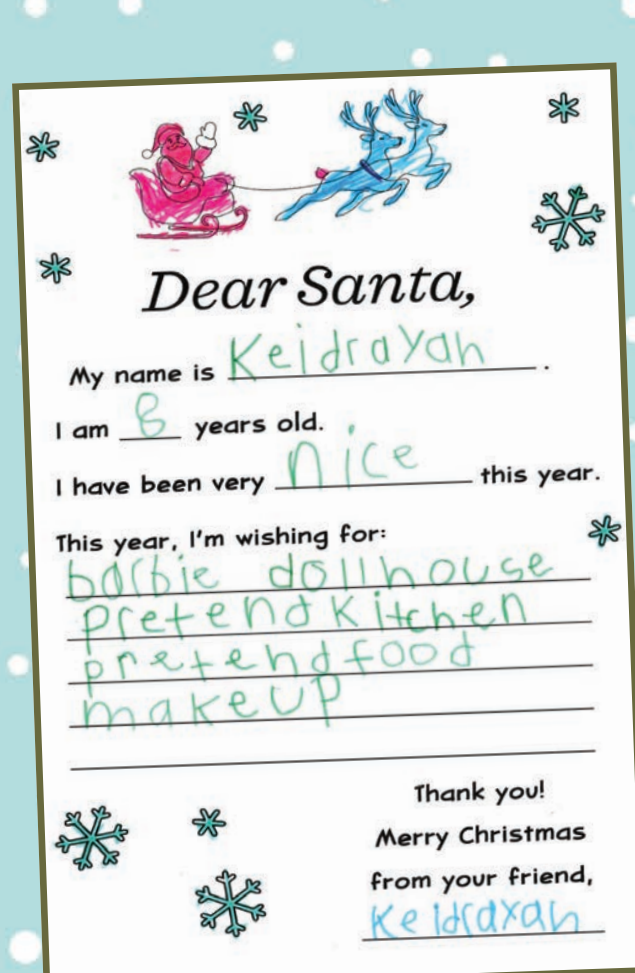 Dear Santa,
My name is Keidrayah.
I am 8 years old.
I have been very nice this year.
This year, I'm wishing for:
barbie dollhouse
pretend kitchen
pretend food
makeup
Thank you!
Merry Christmas
from your friend,
Keidrayah